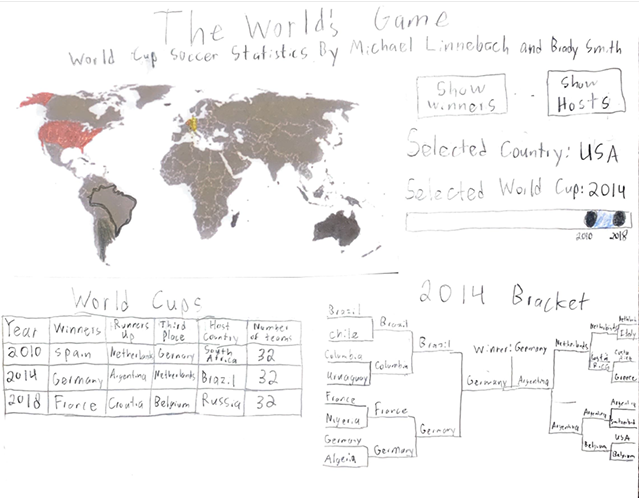 The World's Game
World Cup Soccer Statistics By Michael Linnebach and Brady Smith
Show Winners
Show Hosts
Selected Country: USA
Selected World Cup: 2014
2010 2018
World Cups
Year Winners Runners Up Third Place Host Country Number of teams
2010 Spain Netherlands Germany South Africa 32
2014 Germany Argentina Netherlands Brazil 32
2018 France Croatia Belgium Russia 32
2014 Bracket
Brazil
Chile
Colombia
Uruguay
France
Nigeria
Germany
Algeria
Brazil
Colombia
France
Germany
Brazil
Germany
Winner: Germany
Germany
Argentina
Netherlands
Argentina
Netherlands
Costa Rica
Argentina
Belgium
Italy
Costa Rica
Greece
Argentina
Switzerland
USA
Belgium